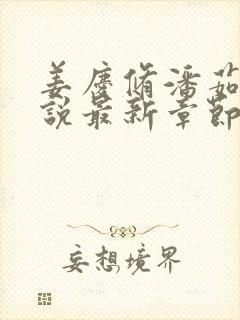 姜庆偹潘茹
說最新章節
妄想境界